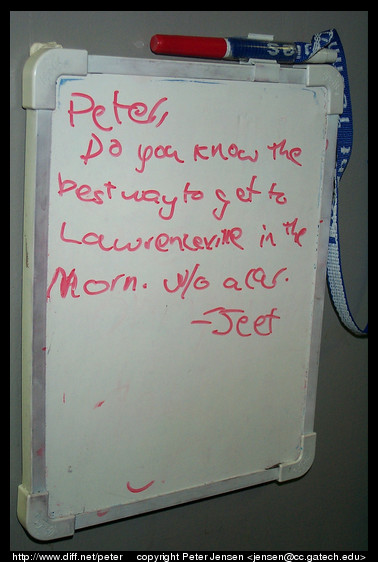 Peter,
Do you know the
best way to get to
Lawrenceville in the
Morn. w/o a car.
-Jeet
http://www.diff.net/peter copyright Peter Jensen <jensen@cc.gatech.edu>